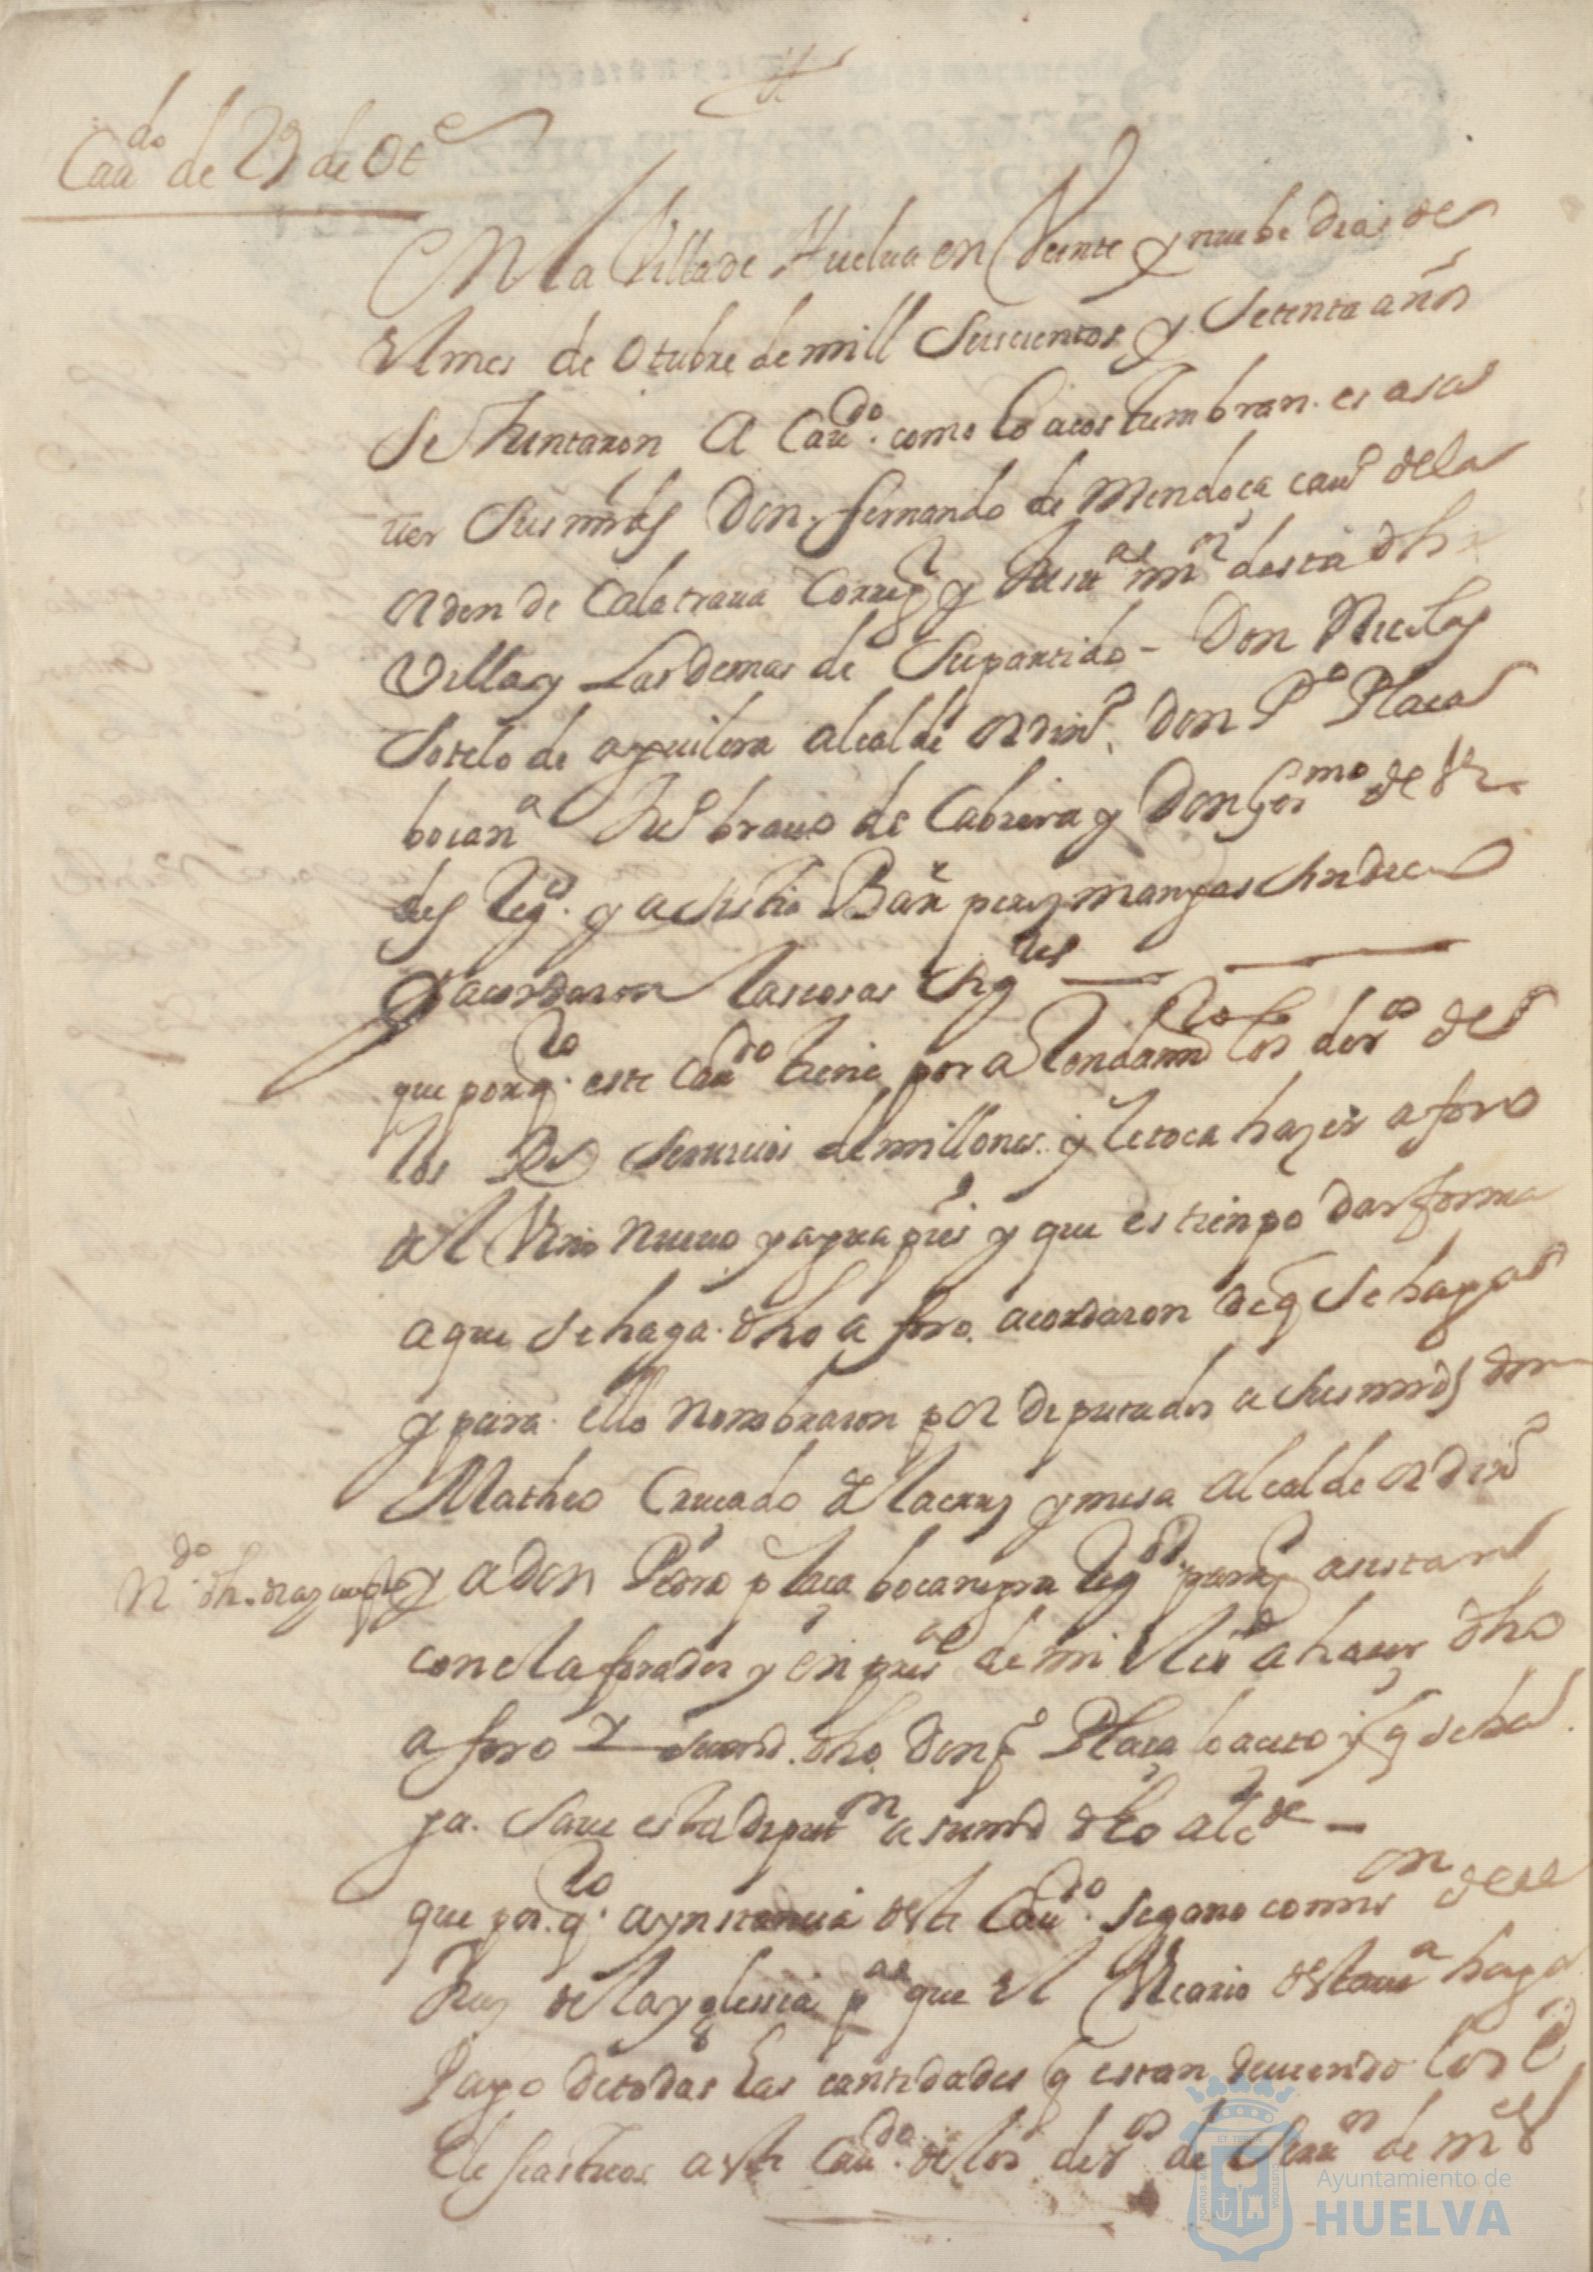 Cau.do de 29 de Ote
En la Villa de Huelua en Veinte y nuebe dias de
el mes de Otubre de mill Seiscientos y Setenta años
Se Juntaron A Cau.do como lo acostumbran es a sa
uer Sus mrds Don fernando de Mendoça cauo de la
orden de Calatraua Corregr y Justa mor desta dha
Villa y Las demas de Su partido - Don Nicolas
Sotelo de aguilera alcalde ordino. Don Po Plaça
bocana Juo brauo de Cabrera y Don Germo de
des Regs. y asistio Bar perez mangas Sindico
y acordaron las cosas Siguiẽtes
que por qto este Cau.do tiene por arrendamto los deros de
los Rs Seruicios de millones y le toca hazer aforo
del Vino nueuo y agua pies y que es tienpo dar forma
a que Se haga dho aforo acordaron de q Se haga
y para ello nombraron por diputados a Sus mrds don
Matheo Cruçado de la cruz y mesa alcalde ordino
y a don Pedro plaça bocanegra Regor para q asistan
con el aforador y en presa de mi el esno a hacer dho
aforo y su md dho don Po Plaça lo aceto y q se ha
ga Sauer esta diputon a su md dho alcde -
que por qto a ynstancia deste Cau.do Se gano comison del
Juez de la yglesia pa que el Vicario desta ua haga
pago de todas las cantidades q estan deuiendo los e
clesiasticos a este Cau.do de los deros de Seruon de mes
No. dh.
Ayuntamiento de
HUELVA